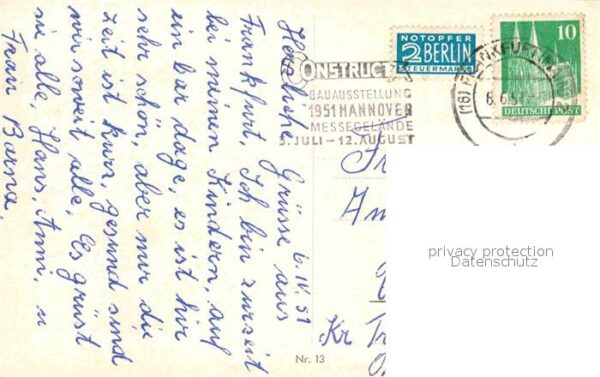 6.IV.51
Herzliche Grüsse aus
Frankfurt. Ich bin zurzeit
bei meinen Kindern, auf
ein bar dage, es ist hir
sehr schön, aber nur die
zeit ist kurz, gesund sind
wir soweit alle. Es grüst
sie alle, Hans, Anni, u
Frau Barna.
NOTOPFER
2 BERLIN
STEUERMARKE
CONSTRUCTA
BAUAUSSTELLUNG
1951 HANNOVER
MESSEGELÄNDE
3. JULI – 12. AUGUST
10
DEUTSCHE POST
(16) FRANKFURT
6.6.51
Fr
An
Kr Tr
O.
Nr. 13
privacy protection
Datenschutz